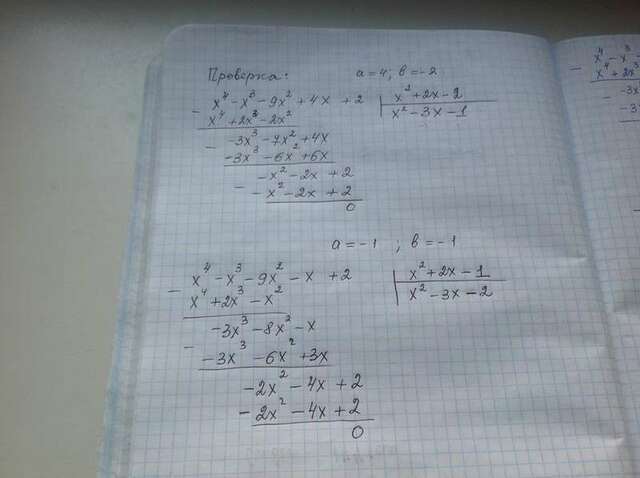 Проверка: a = 4; b = -2
- x⁴ - x³ - 9x² + 4x + 2 | x² + 2x - 2
x⁴ + 2x³ - 2x² | x² - 3x - 1
- -3x³ - 7x² + 4x
-3x³ - 6x² + 6x
- -x² - 2x + 2
-x² - 2x + 2
0
a = -1; b = -1
- x⁴ - x³ - 9x² - x + 2 | x² + 2x - 1
x⁴ + 2x³ - x² | x² - 3x - 2
- -3x³ - 8x² - x
-3x³ - 6x² + 3x
-2x² - 4x + 2
- 2x² - 4x + 2
0
- x⁴ - x³
x⁴ + 2x³
-3x
-3